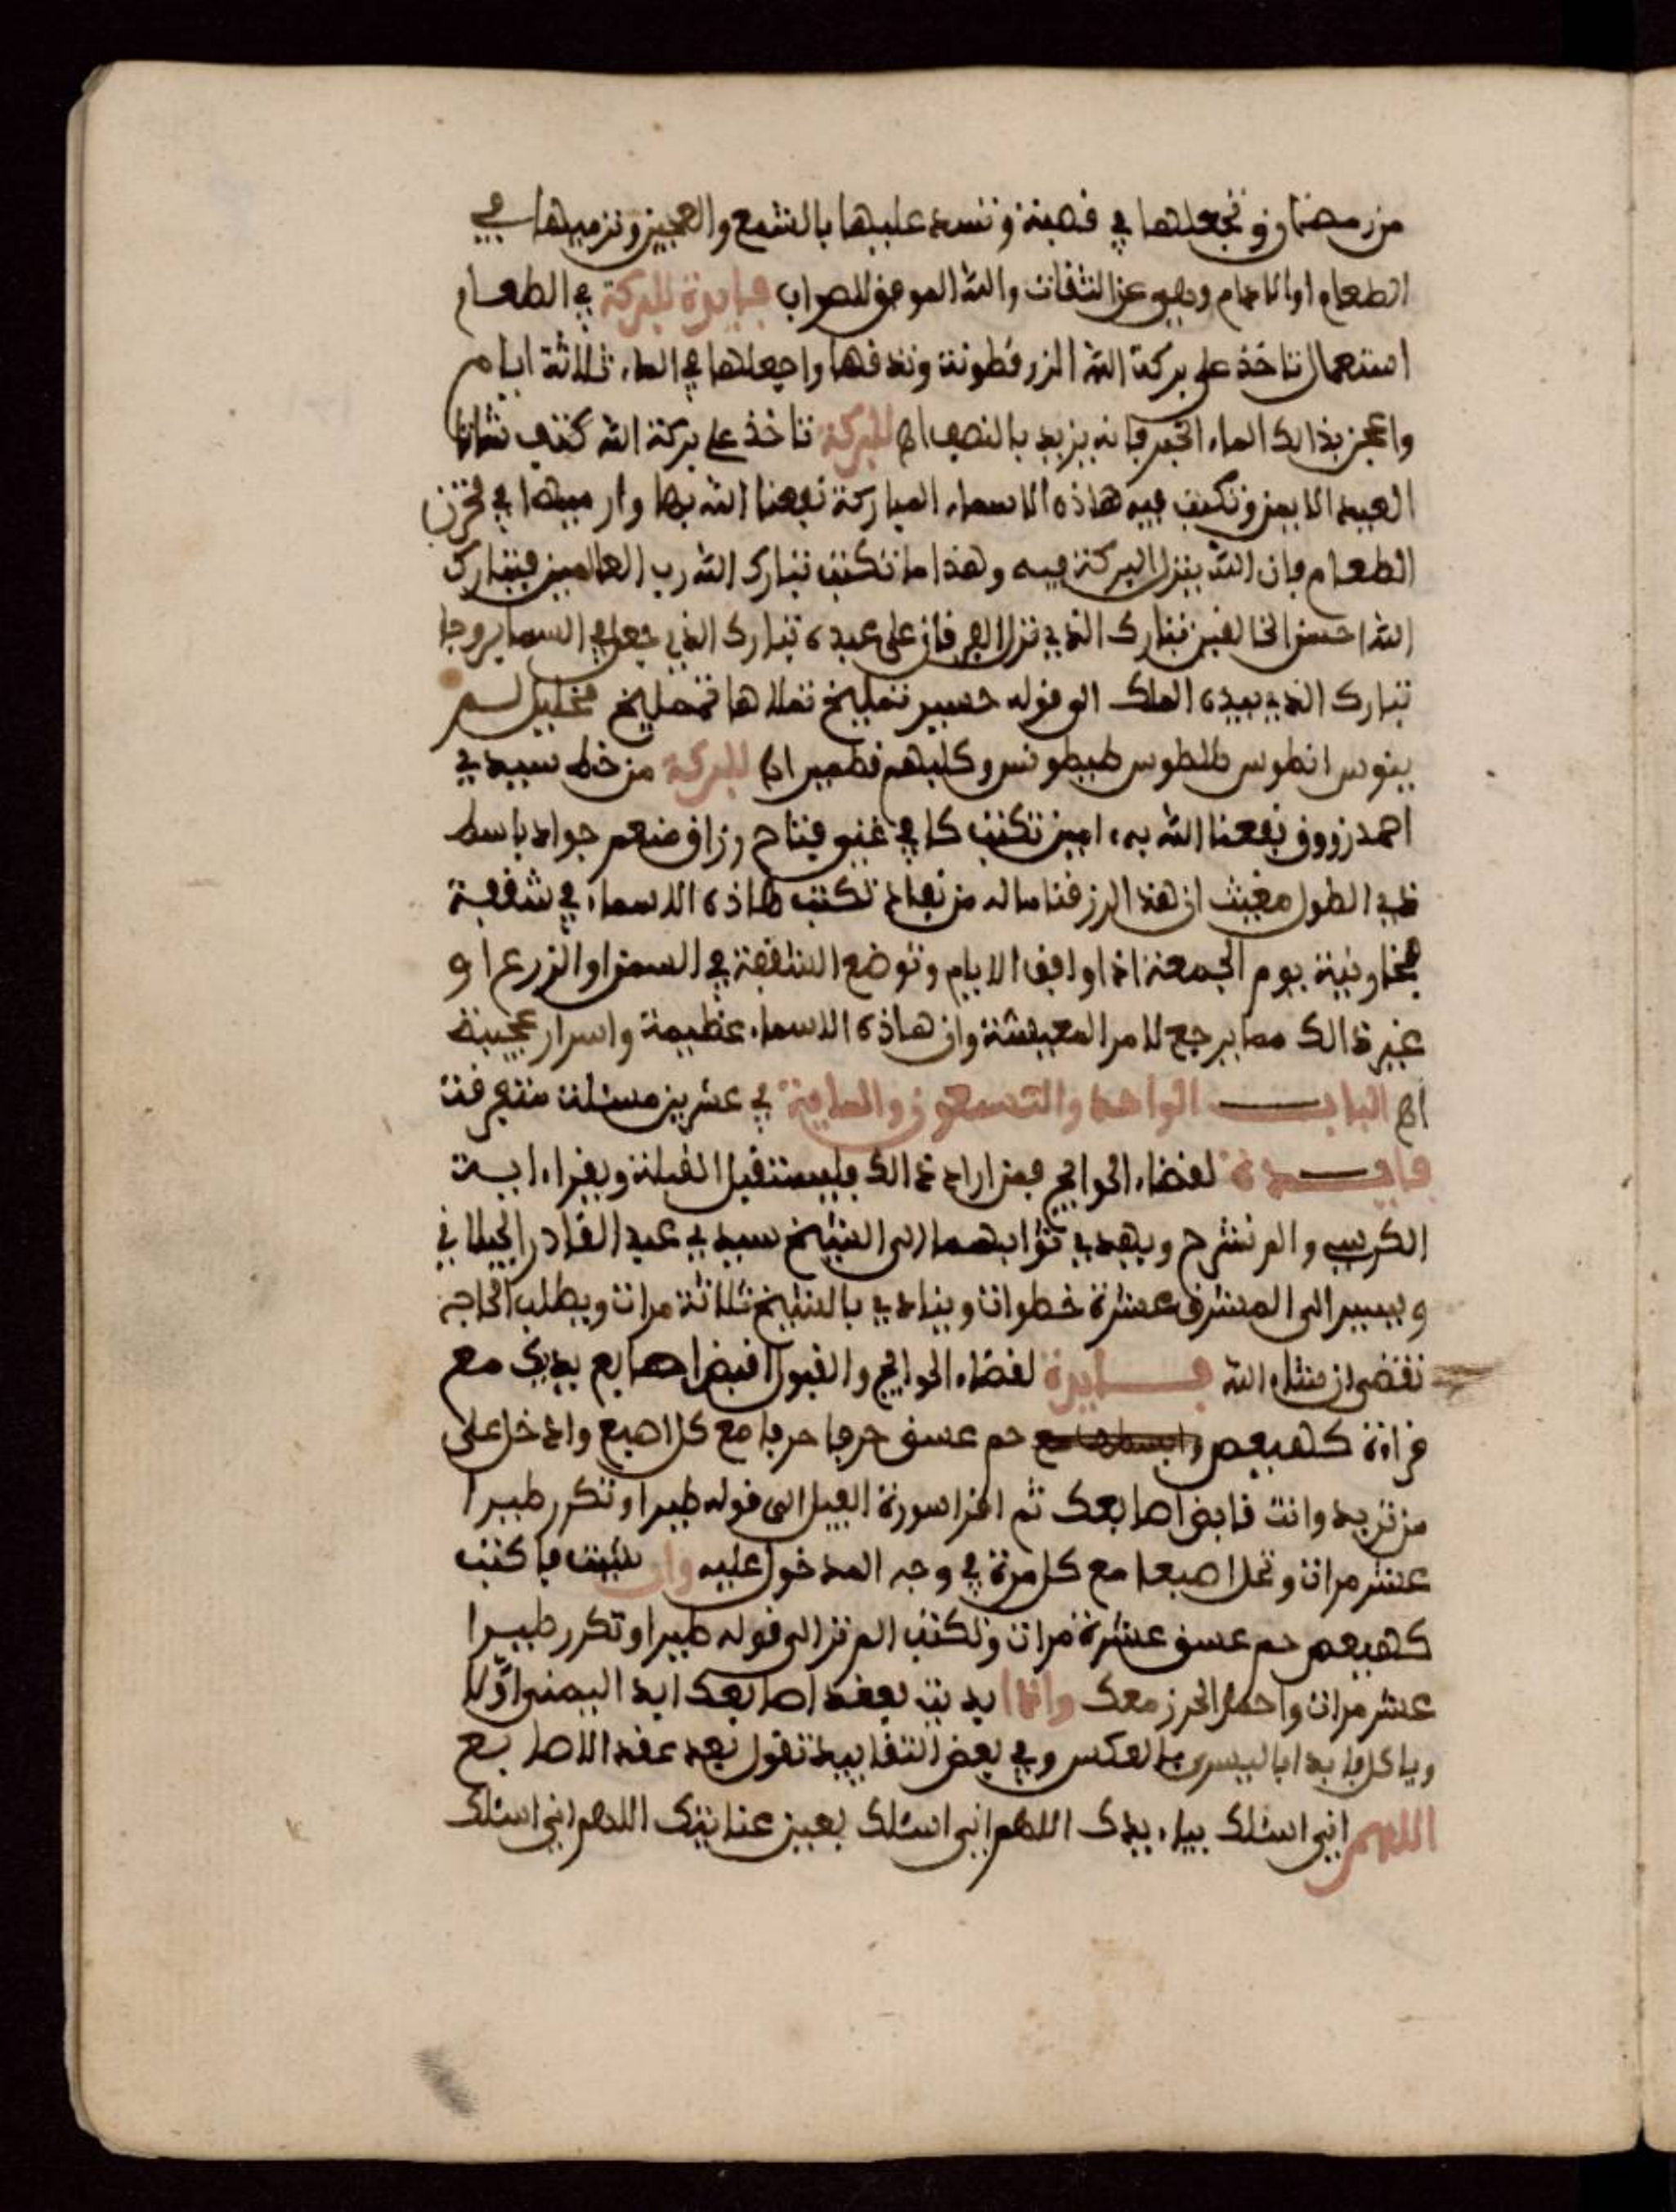 من رمضان وتجعلها في قصبة وتسد عليها بالشمع والعجين وترميها في
الطعام او الادام وهي عن الثقات والله الموفق للصواب فايدة للبركة في الطعام
استعمال تاخذ على بركة الله الزرقطونة وتدقها واجعلها في الماء ثلاثة ايام
واعجن بذالك الماء الخبز فانه يزيد بالنصف اه للبركة تاخذ على بركة الله كتف شاة
العيد الايمن وتكتب فيه هاذه الاسماء المباركة نفعنا الله بها وارميها في مخزن
الطعام فان الله ينزل البركة فيه وهذا ما تكتب تبارك الله رب العالمين فتبارك
الله احسن الخالقين تبارك الذي نزل الفرقان على عبده تبارك الذي جعل في السما بروجا
تبارك الذي بيده الملك الى قوله حسير تمليخ تملا ها
وكلبهم قطمير اه للبركة من خط سيدي
احمد زروق نفعنا الله به امين تكتب كافي غني فتاح رزاق منعم جواد باسط
ذي الطول مغيث ان هذا لرزقنا ما له من نفاد تكتب هاذه الاسماء في شقفة
يوم الجمعة اذا وافق الايام وتوضع الشقفة في السمن او الزرع او
غير ذالك مما يرجع لامر المعيشة وان هاذه الاسماء عظيمة واسرار عجيبة
اه الباب الواحد والتسعون والماية في عشرين مسئلة متفرقة
فايدة لقضاء الحوايج فمن اراد ذالك فليستقبل القبلة ويقراء اية
الكرسي والم نشرح ويهدي ثوابهما الى الشيخ سيدي عبد القادر الجيلاني
ويسير الى المشرق عشرة خطوات وينادي بالشيخ ثلاثة مرات ويطلب الحاجة
تقضى ان شاء الله فايدة لقضاء الحوايج والقبول اقبض اصابع يديك مع
قراءة كهيعص حم عسق حرفا حرفا مع كل اصبع وادخل على
من تريد وانت قابض اصابعك ثم اقرا سورة الفيل الى قوله طيرا وتكرر طيرا
عشر مرات وتحل اصبعا مع كل مرة في وجه المدخول عليه وان شئت فاكتب
كهيعص حم عسق عشرة مرات وتكتب الم تر الى قوله طيرا وتكرر طيرا
عشر مرات واحمل الحرز معك واذا بديت بعقد اصابعك ابد اليمنى اولا
وياكل فابدا باليسرى بالعكس وفي بعض التقاييد تقول بعد عقد الاصابع
اللهم اني اسئلك بياء يدك اللهم اني اسئلك بعين عنايتك اللهم اني اسئلك